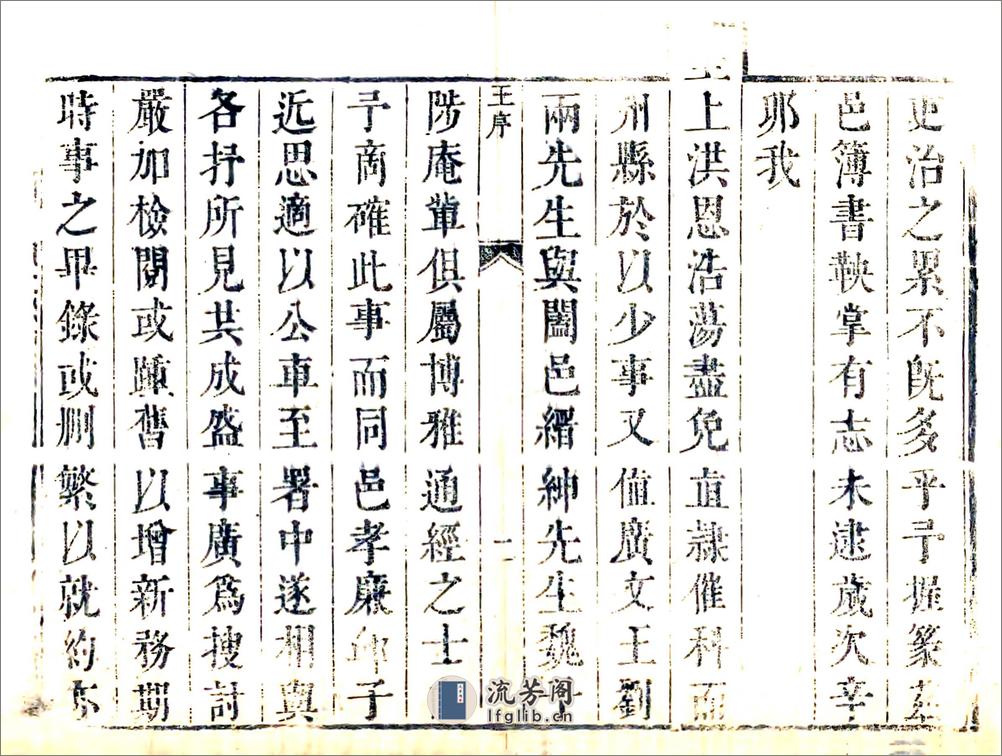 吏治之累不旣多乎予握篆
邑簿書鞅掌有志未逮歲次辛
卯我
上洪恩浩蕩盡免直隸催科而
州縣於以少事又値廣文王劉
兩先生與闔邑縉紳先生魏
王序
一
陟庵軰俱屬博雅通經之士
予商確此事而同邑孝廉邱子
近思適以公車至署中遂相與
各抒所見共成盛事廣爲搜討
嚴加檢閱或踵舊以增新務期
時事之畢錄或刪繁以就約亦
流芳阁
lfglib.cn